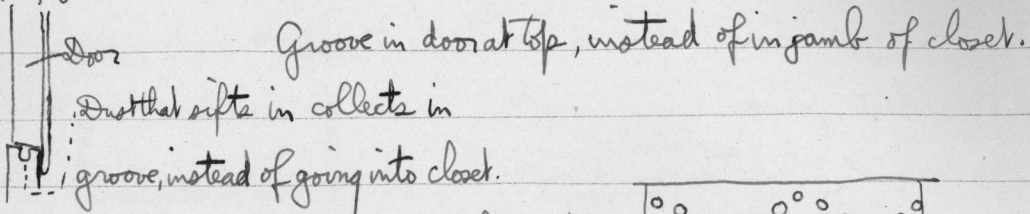 Door
Groove in door at top, instead of in jamb of closet.
Dust that sifts in collects in
groove, instead of going into closet.